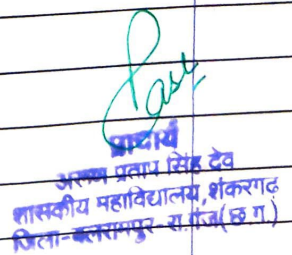 प्राचार्य
अरूण प्रताप सिंह देव
शासकीय महाविद्यालय,शंकरगढ़
जिला-बलरामपुर-रा.गंज(छ.ग.)